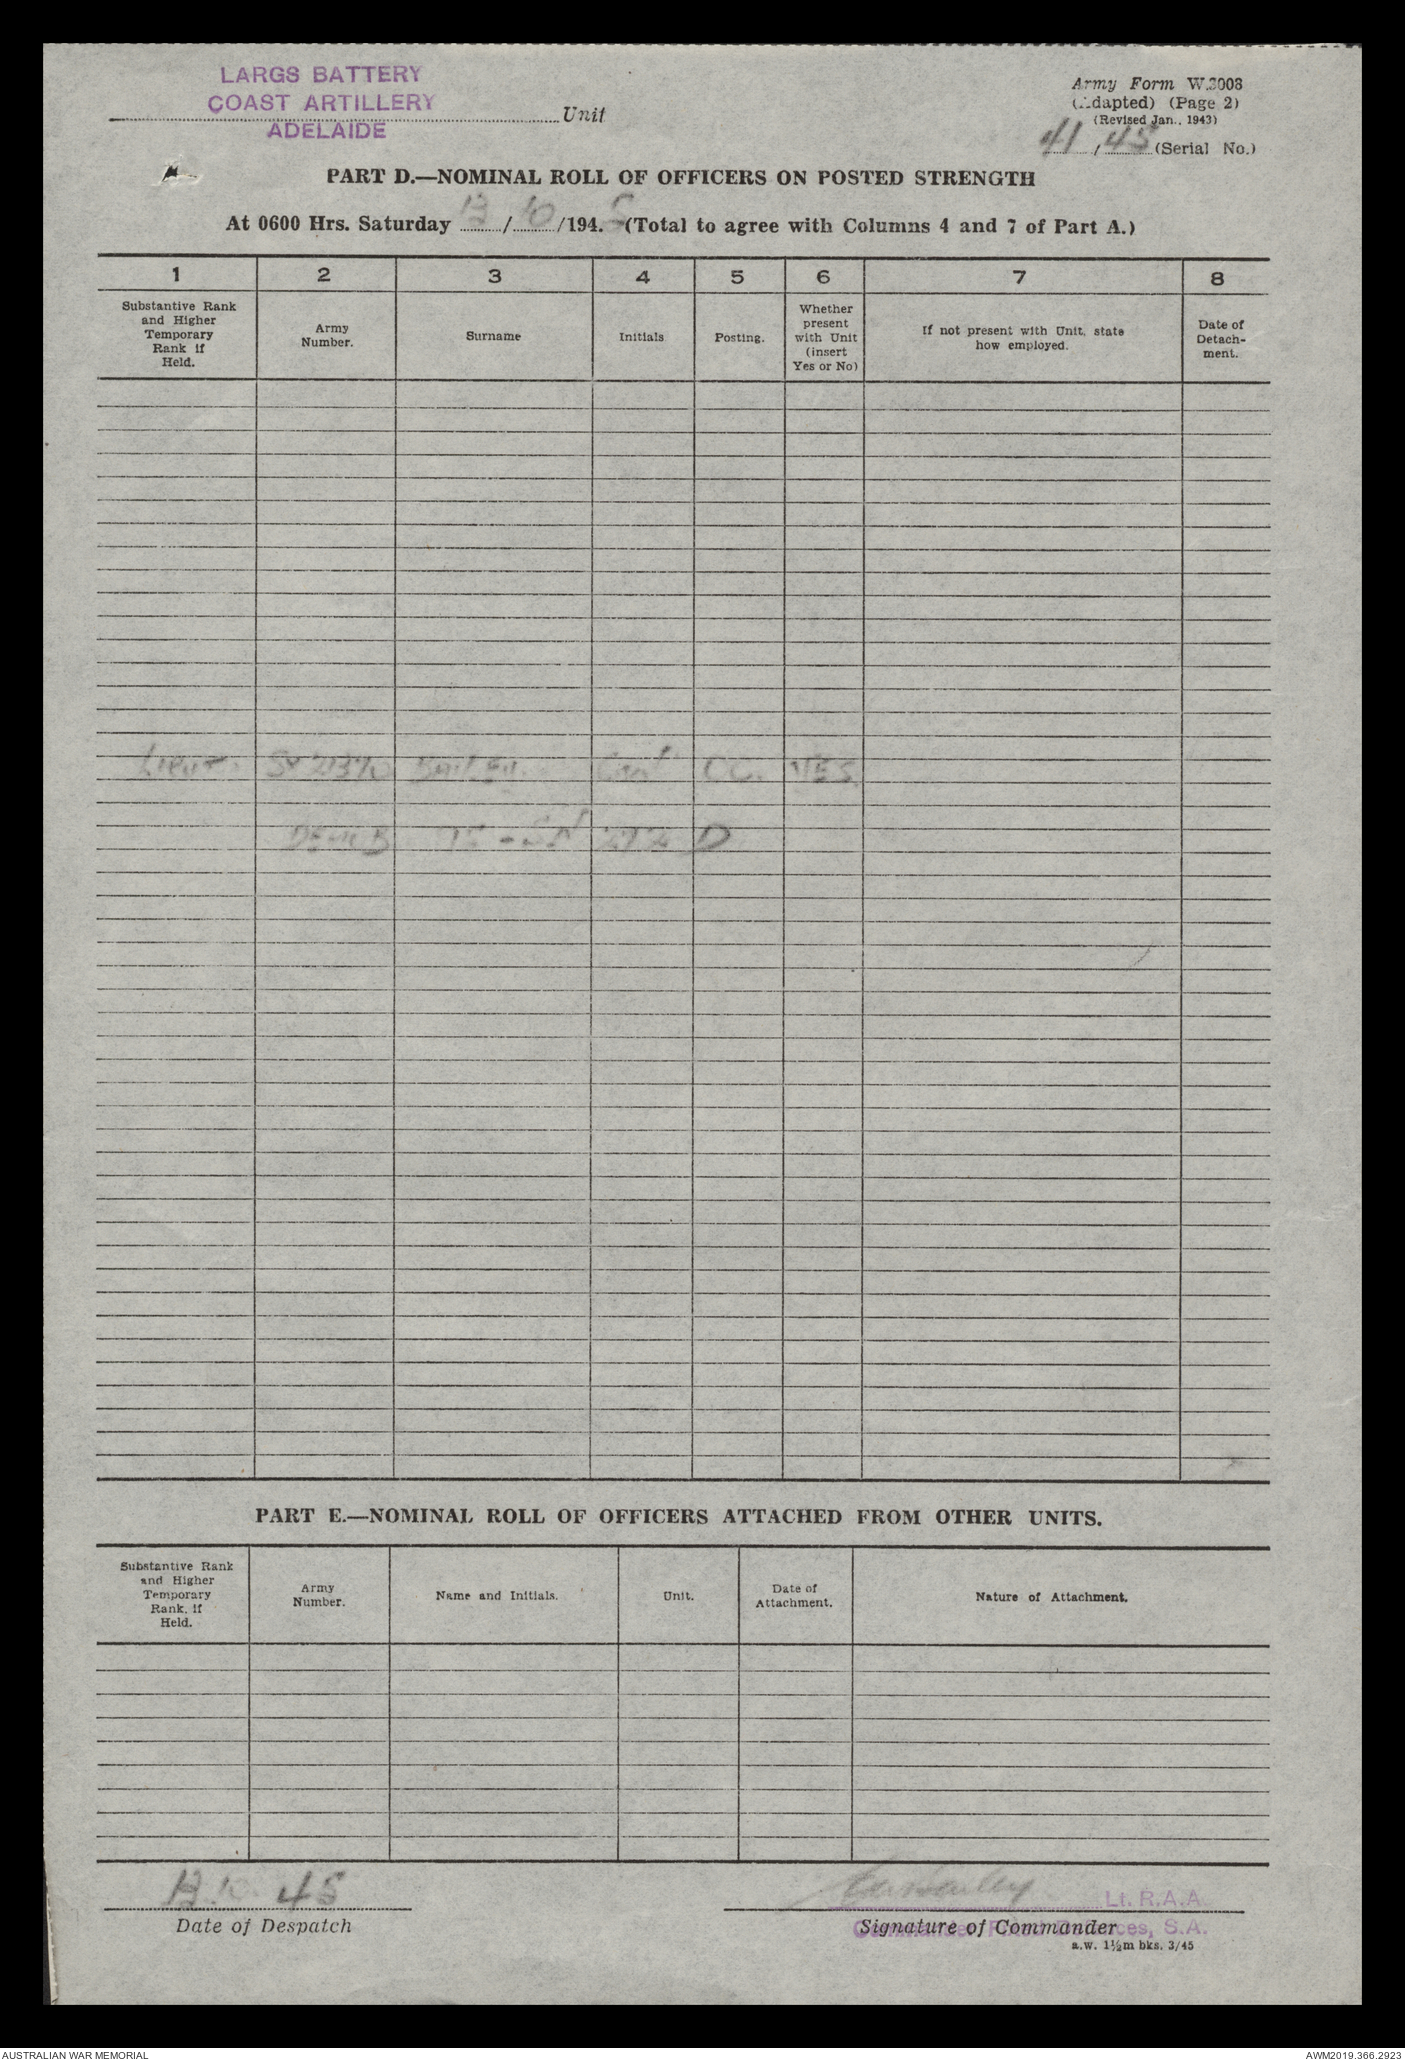 LARGS BATTERY
COAST ARTILLERY
ADELAIDE
Unit
Army Form W.3008
(Adapted) (Page 2)
(Revised Jan., 1943)
41/45 (Serial No.)
PART D.—NOMINAL ROLL OF OFFICERS ON POSTED STRENGTH
At 0600 Hrs. Saturday 13/10/1945 (Total to agree with Columns 4 and 7 of Part A.)
1 2 3 4 5 6 7 8
Substantive Rank and Higher Temporary Rank if Held.
Army Number.
Surname
Initials
Posting.
Whether present with Unit (insert Yes or No)
If not present with Unit, state how employed.
Date of Detach-ment.
Lieut. OC. YES
D
PART E.—NOMINAL ROLL OF OFFICERS ATTACHED FROM OTHER UNITS.
Substantive Rank and Higher Temporary Rank, if Held.
Army Number.
Name and Initials.
Unit.
Date of Attachment.
Nature of Attachment.
13.10.45
Lt. R.A.A.
Date of Despatch
Signature of Commander
Commander Fixed Defences, S.A.
a.w. 1½m bks. 3/45
AUSTRALIAN WAR MEMORIAL
AWM2019.366.2923